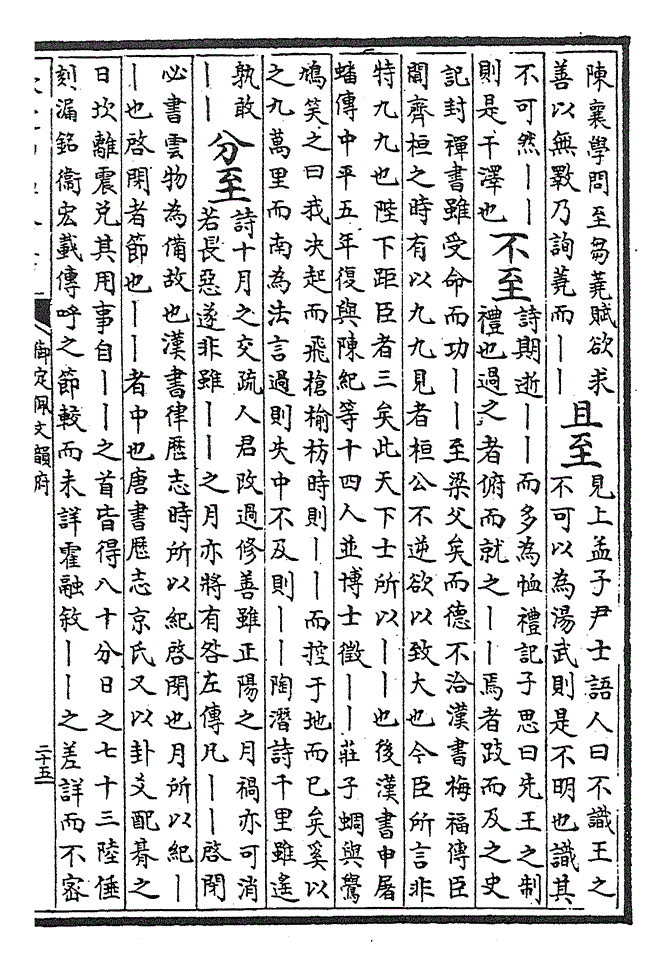 陳襄學問至芻蕘賦欲求
善以無斁乃詢蕘而丨丨
且至
見上孟子尹士語人曰不識王之
不可以為湯武則是不明也識其
不可然丨丨
則是干澤也
不至
詩期逝丨丨而多為恤禮記子思曰先王之制
禮也過之者俯而就之丨丨焉者跂而及之史
記封禪書雖受命而功丨丨至梁父矣而德不洽漢書梅福傳臣
聞齊桓之時有以九九見者桓公不逆欲以致大也今臣所言非
特九九也陛下距臣者三矣此天下士所以丨丨也後漢書申屠
蟠傳中平五年復與陳紀等十四人並博士徵丨丨莊子蜩與鷽
鳩笑之曰我決起而飛搶榆枋時則丨丨而控于地而已矣奚以
之九萬里而南為法言過則失中不及則丨丨陶潛詩千里雖遙
孰敢
丨丨
分至
詩十月之交疏人君改過修善雖正陽之月禍亦可消
若長惡遂非雖丨丨之月亦將有咎左傳凡丨丨啓閉
必書雲物為備故也漢書律歷志時所以紀啓閉也月所以紀丨
丨也啓閉者節也丨丨者中也唐書歷志京氏又以卦爻配朞之
日坎離震兌其用事自丨丨之首皆得八十分日之七十三陸倕
刻漏銘衞宏載傳呼之節較而未詳霍融敘丨丨之差詳而不密
御定佩文韻府
二十五